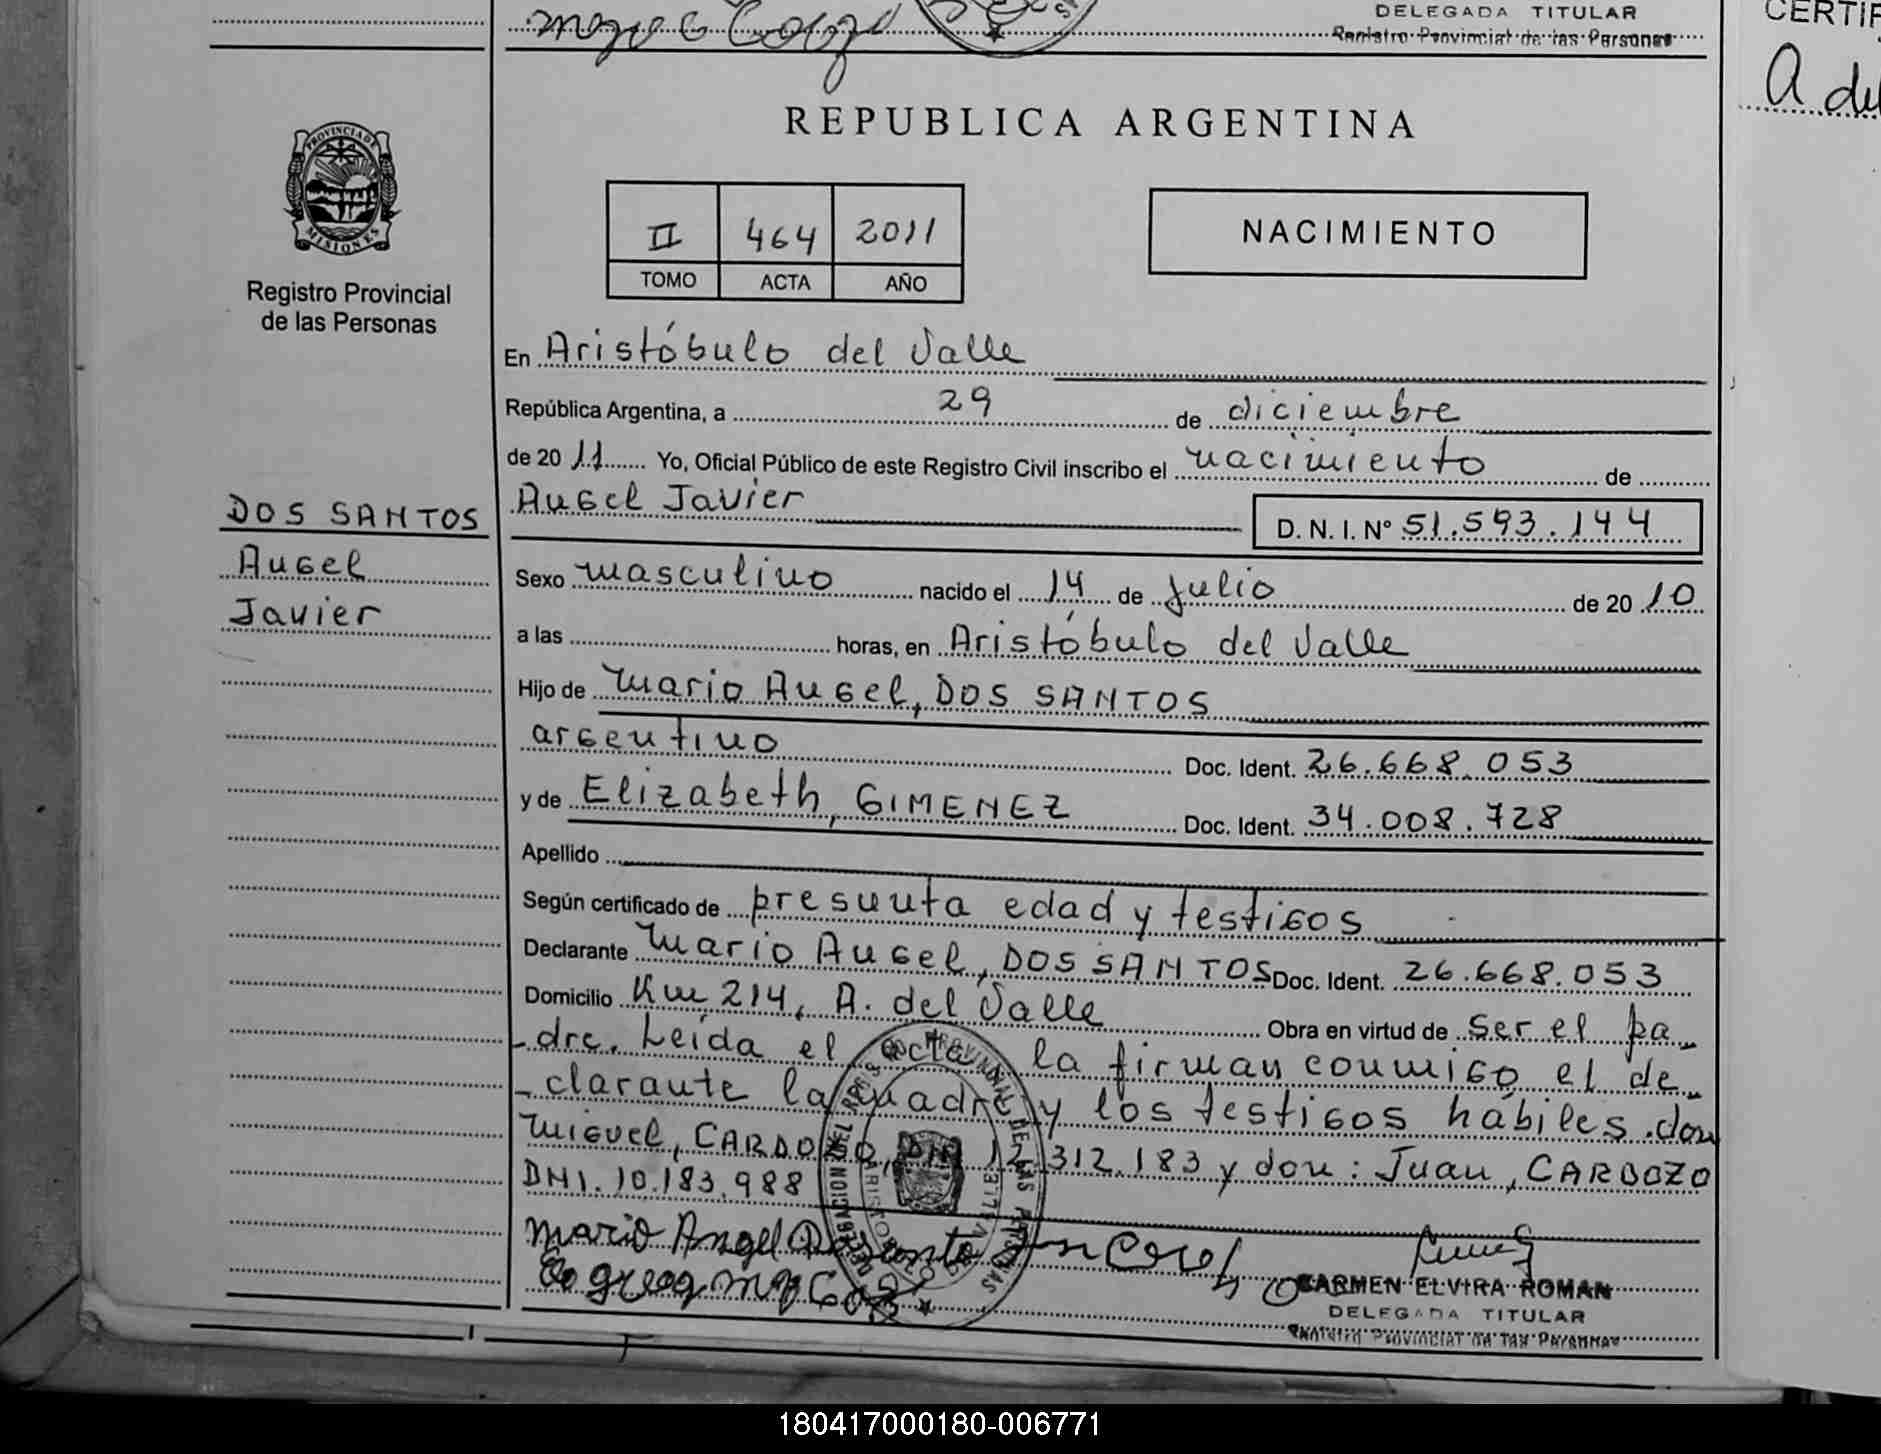 DELEGADA TITULAR
Registro Provincial de las Personas
CERTIF
A del
REPUBLICA ARGENTINA
PROVINCIA DE
MISIONES
Registro Provincial
de las Personas
II 464 2011
TOMO ACTA AÑO
NACIMIENTO
En Aristóbulo del Valle
República Argentina, a 29 de diciembre
de 2011 Yo, Oficial Público de este Registro Civil inscribo el nacimiento de
DOS SANTOS
Angel
Javier
Angel Javier D.N.I. Nº 51.593.144
Sexo masculino nacido el 14 de julio de 2010
a las horas, en Aristóbulo del Valle
Hijo de Mario Angel, DOS SANTOS
argentino Doc. Ident. 26.668.053
y de Elizabeth, GIMENEZ Doc. Ident. 34.008.728
Apellido
Según certificado de presunta edad y testigos
Declarante Mario Angel, DOS SANTOS Doc. Ident. 26.668.053
Domicilio Km 214, A. del Valle Obra en virtud de ser el pa
dre. Leída el acta la firman conmigo el de
clarante la madre y los testigos hábiles.don
Miguel, CARDOZO, DNI 12.312.183 y don: Juan, CARDOZO
DNI. 10.183.988
Mario Angel
CARMEN ELVIRA ROMAN
DELEGADA TITULAR
Registro Provincial de las Personas
180417000180-006771